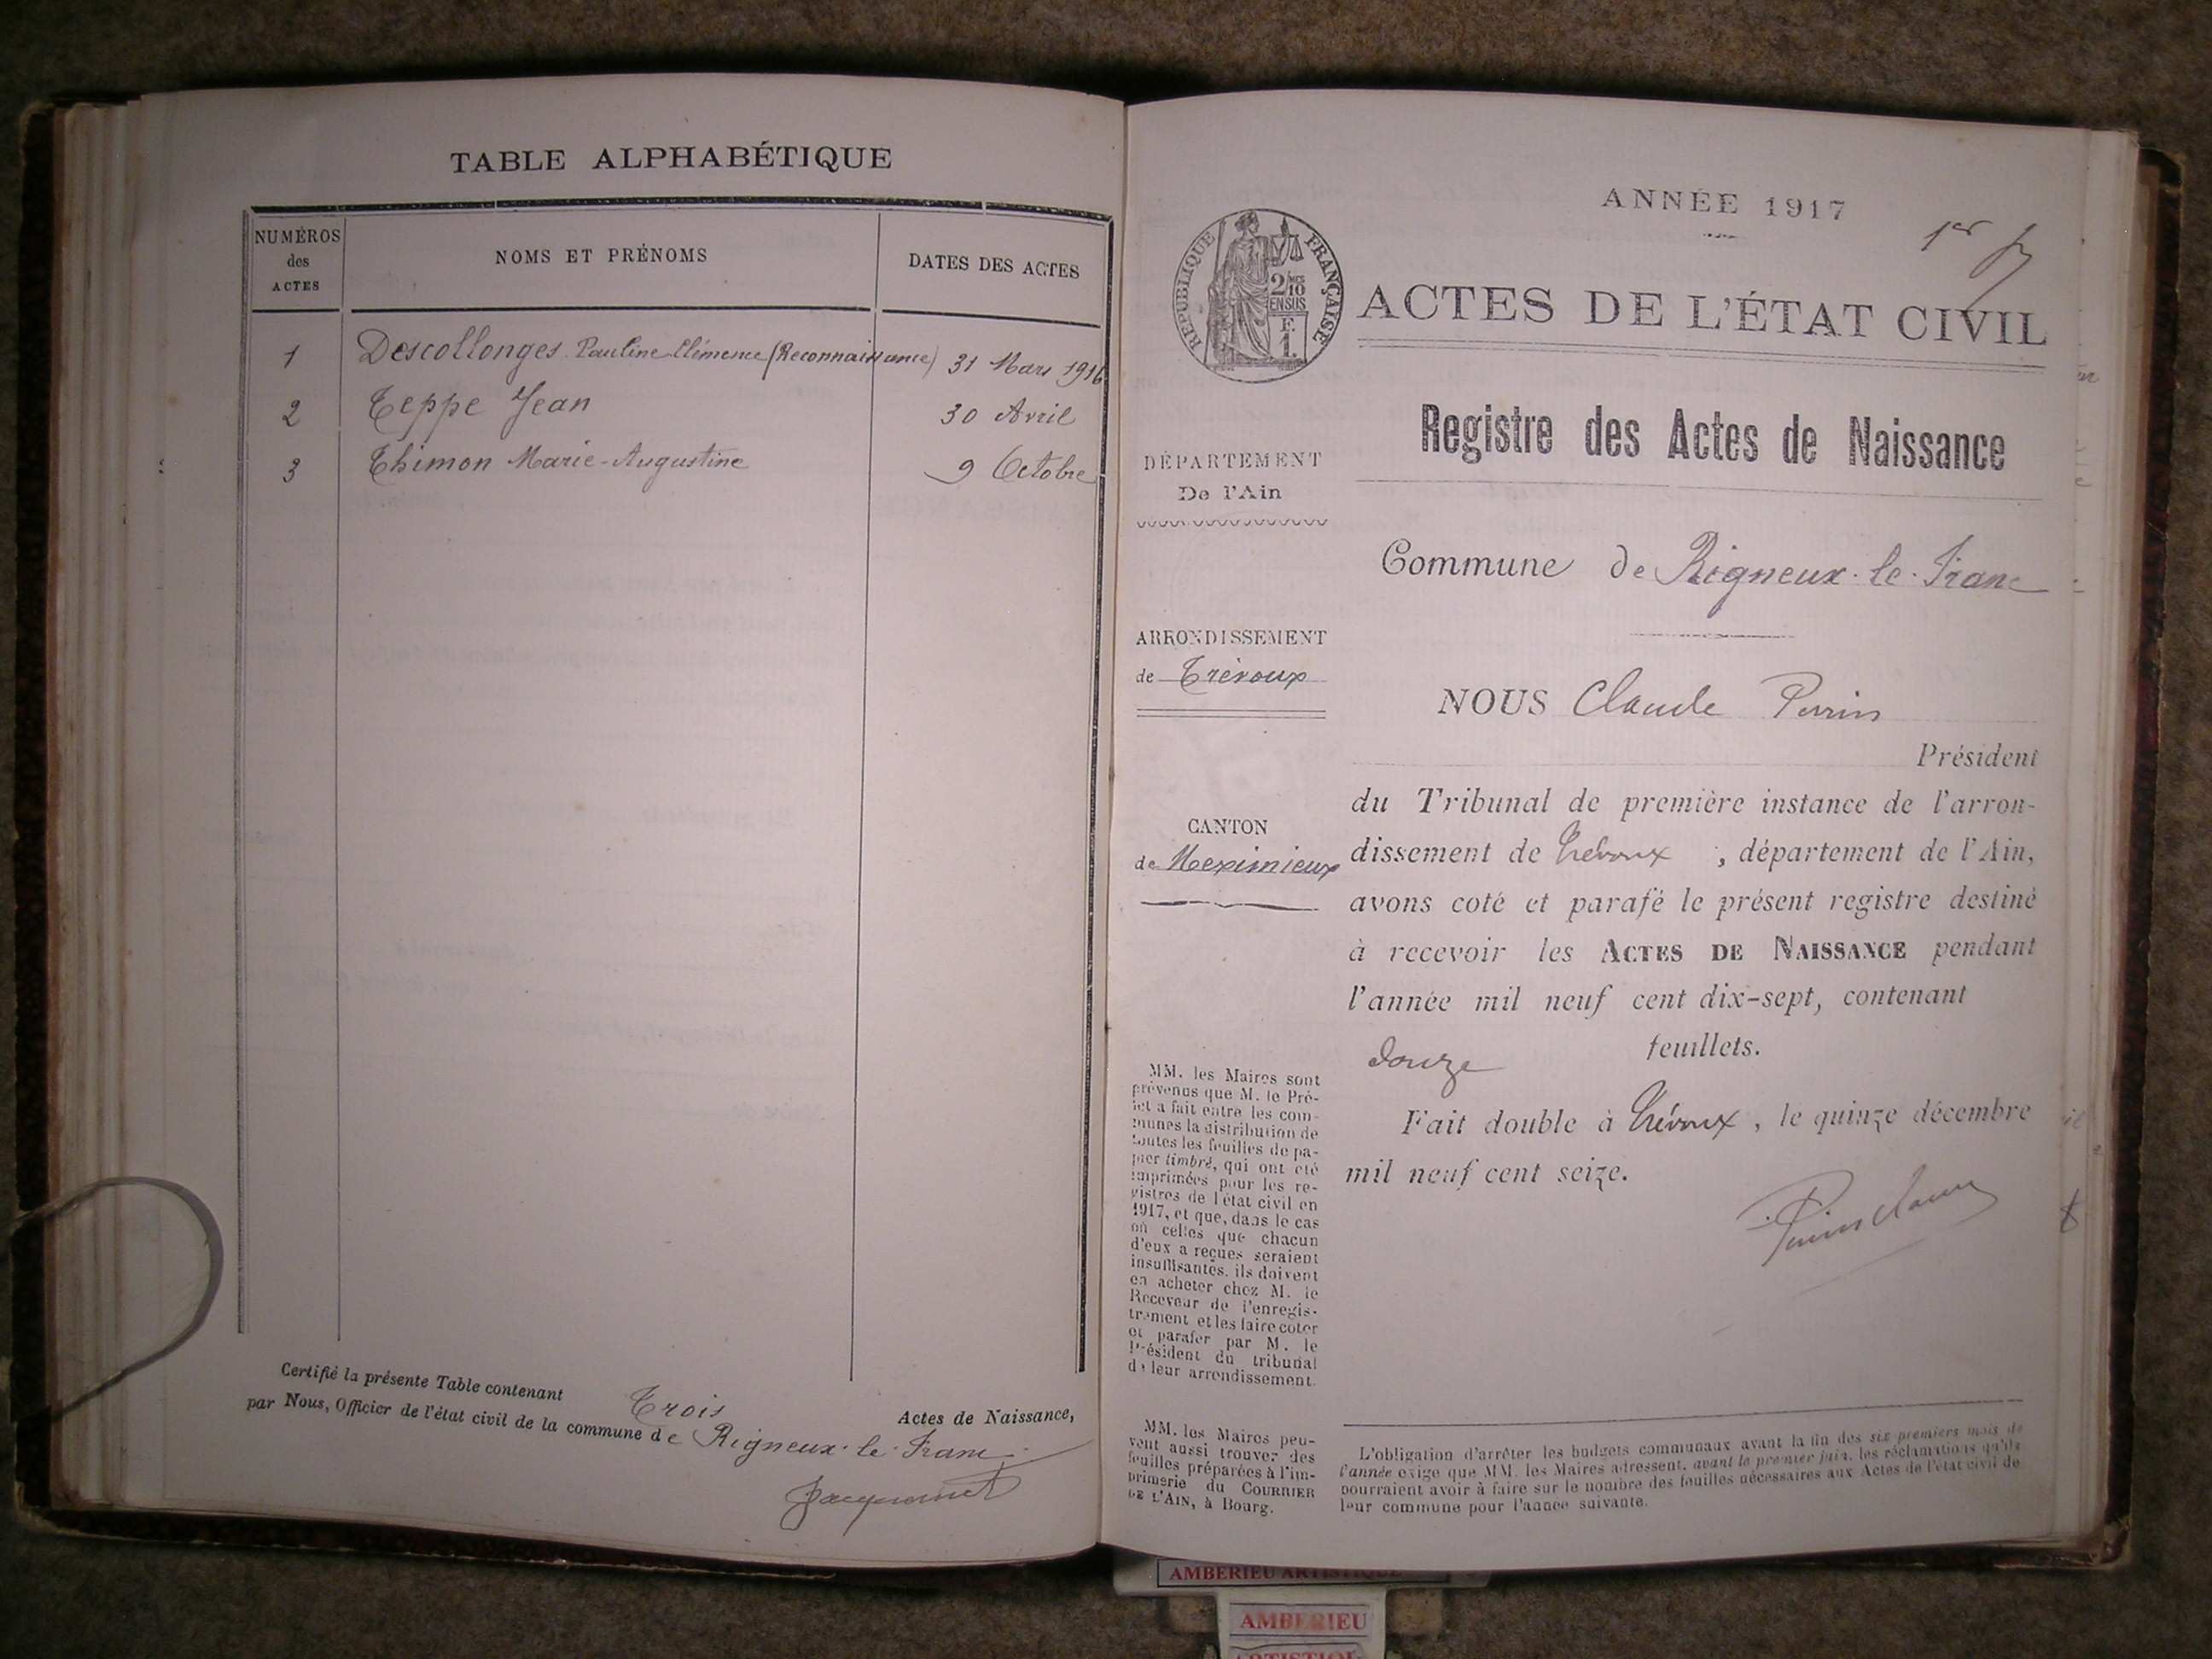 TABLE ALPHABÉTIQUE
NUMÉROS
des
ACTES
NOMS ET PRÉNOMS
DATES DES ACTES
1 Descollonges Pauline Clémence (Reconnaissance) 31 Mars 1916
2 Teppe Jean 30 Avril
3 Thimon Marie-Augustine 9 Octobre
Certifié la présente Table contenant Trois Actes de Naissance,
par Nous, Officier de l'état civil de la commune de Rigneux-le-Franc
Jacquemet
ANNÉE 1917
1er
RÉPUBLIQUE FRANÇAISE
ACTES DE L'ÉTAT CIVIL
Registre des Actes de Naissance
DÉPARTEMENT
De l'Ain
Commune de Rigneux-le-Franc
ARRONDISSEMENT
de Trévoux
CANTON
de Meximieux
NOUS Claude Perrin
Président
du Tribunal de première instance de l'arron-
dissement de Trévoux, département de l'Ain,
avons coté et parafé le présent registre destiné
à recevoir les ACTES DE NAISSANCE pendant
l'année mil neuf cent dix-sept, contenant
douze feuillets.
Fait double à Trévoux, le quinze décembre
mil neuf cent seize.
MM. les Maires sont
prévenus que M. le Pré-
fet a fait entre les com-
munes la distribution de
toutes les feuilles de pa-
pier timbré, qui ont été
imprimées pour les re-
gistres de l'état civil en
1917, et que, dans le cas
où celles que chacun
d'eux a reçues seraient
insuffisantes, ils doivent
en acheter chez M. le
Receveur de l'enregis-
trement et les faire coter
et parafer par M. le
Président du tribunal
de leur arrondissement.
MM. les Maires peu-
vent aussi trouver des
feuilles préparées à l'im-
primerie du COURRIER
DE L'AIN, à Bourg.
L'obligation d'arrêter les budgets communaux avant la fin des six premiers mois de
l'année exige que MM. les Maires adressent, avant le premier juin, les réclamations qu'ils
pourraient avoir à faire sur le nombre des feuilles nécessaires aux Actes de l'état civil de
leur commune pour l'année suivante.
AMBERIEU ARTISTIQUE
AMBERIEU
ARTISTIQUE